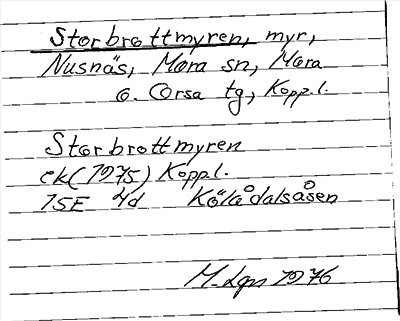 Storbrottmyren, myr,
Nusnäs, Mora sn, Mora
o. Orsa tg, Kopp.l.
Storbrottmyren
ek(1975) Kopp.l.
15E 4d Kölådalsåsen
M. Lgn 1976